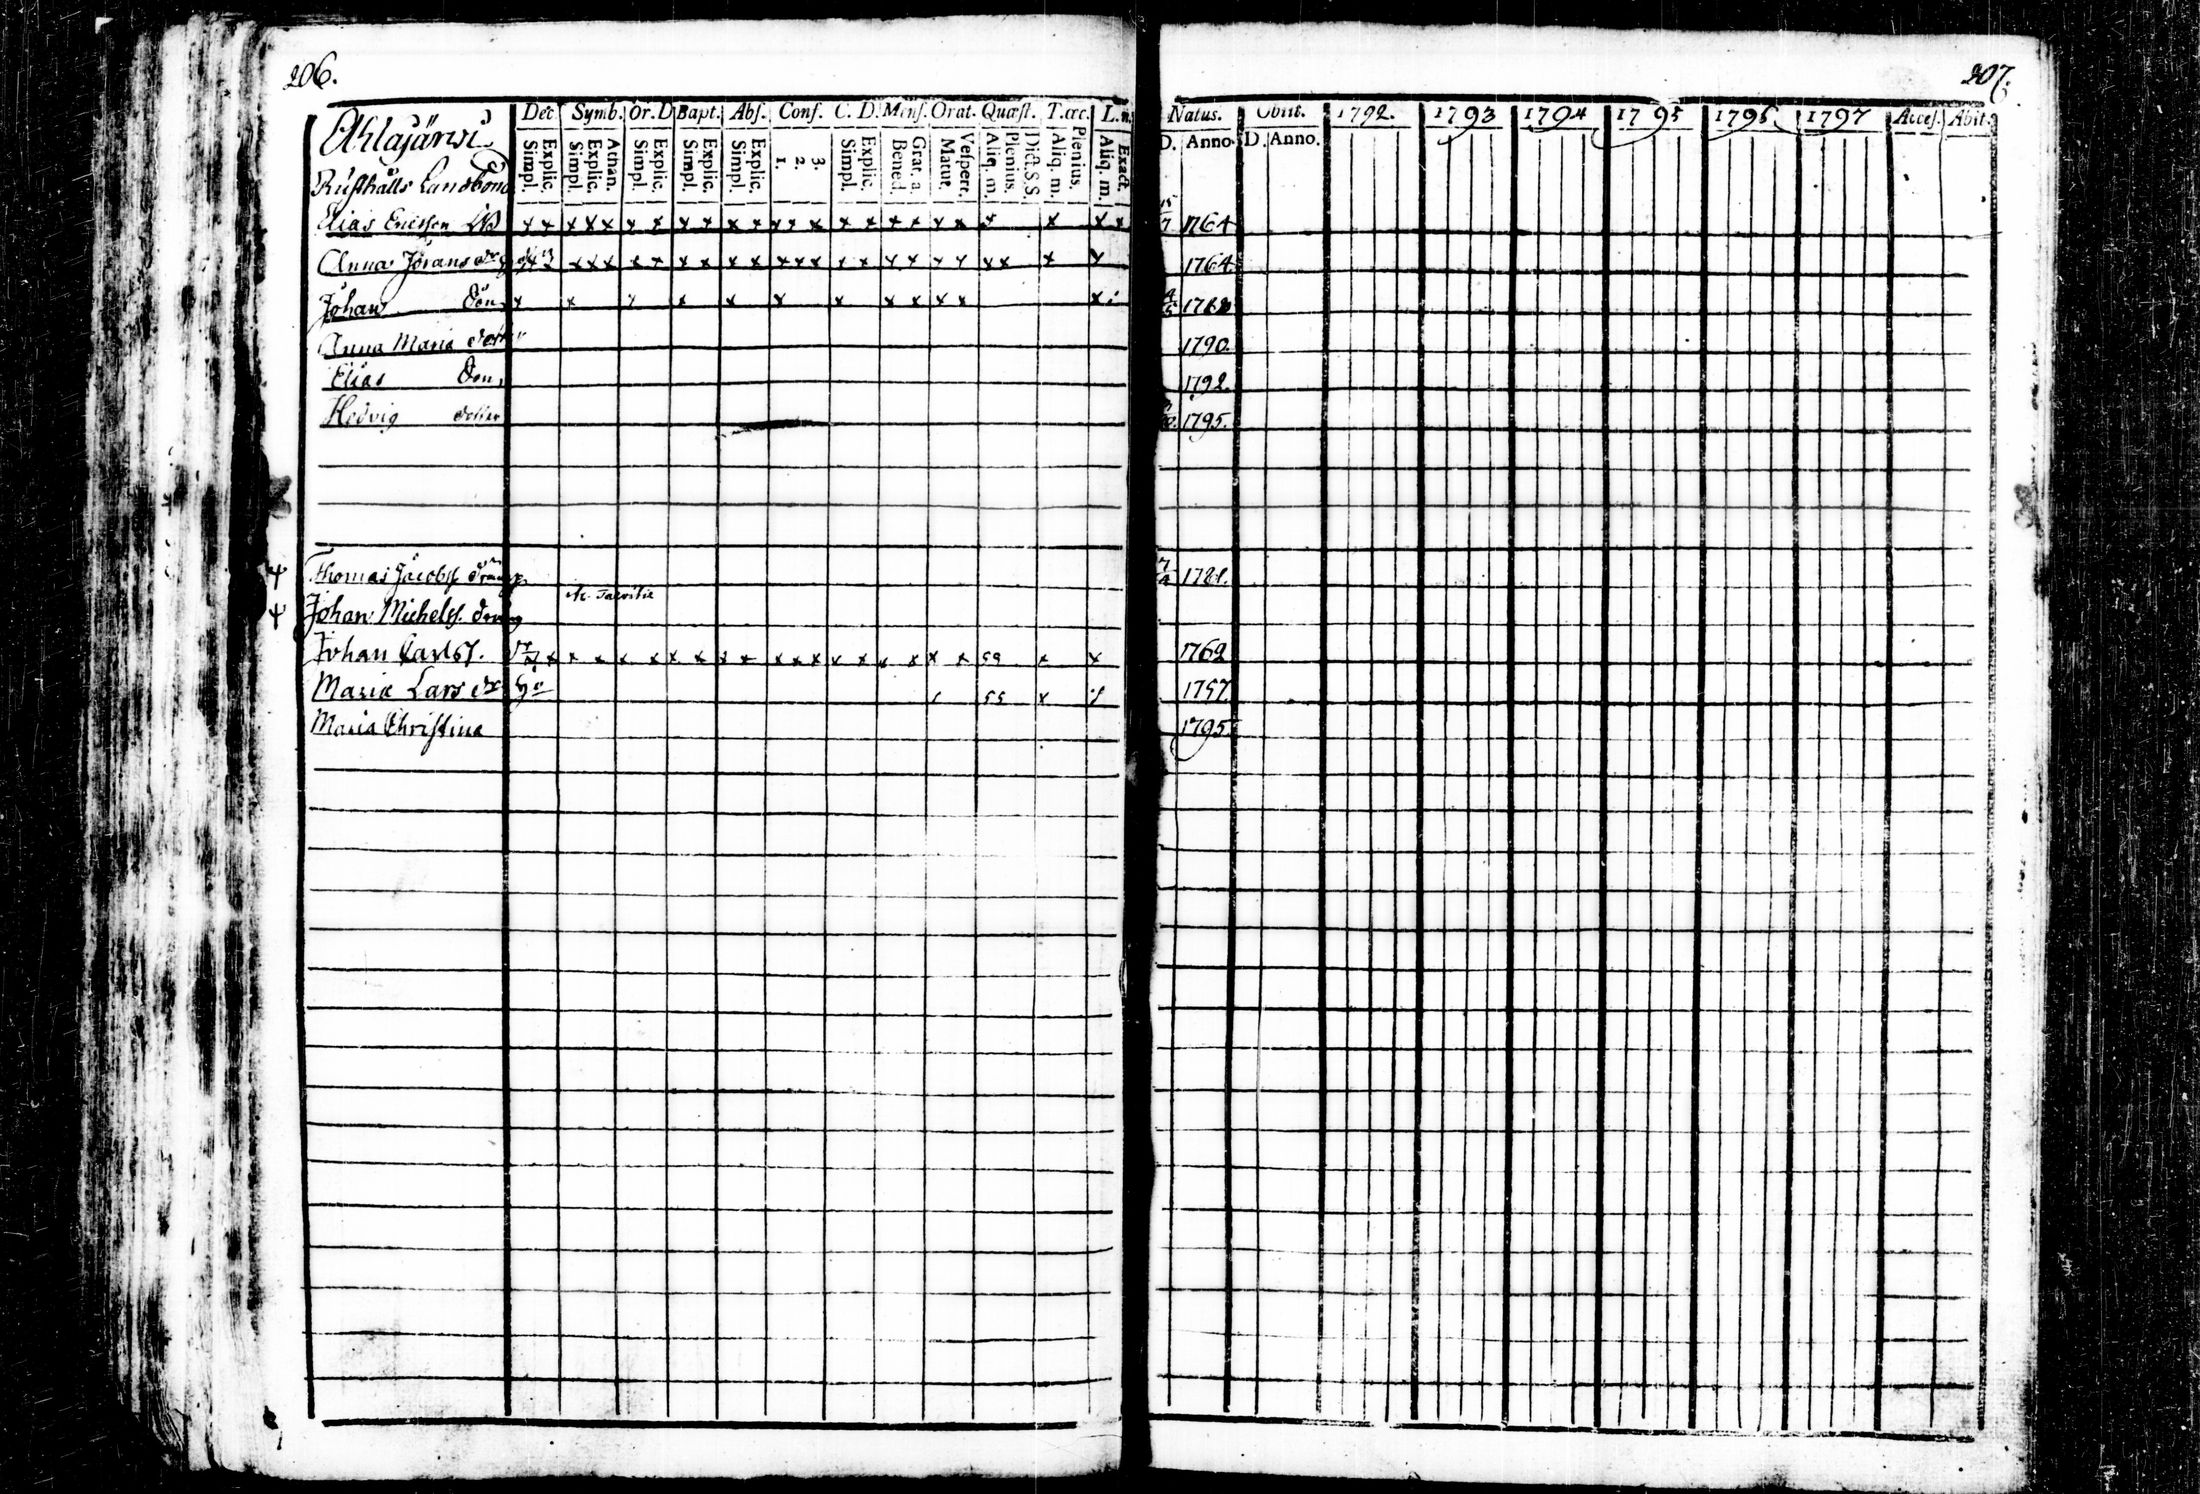 206.
Ahlajärwi
Dec. Symb. Or. D. Bapt. Abs. Conf. C. D. Mens. Orat. Quæst. T. œc. L. n.
Simpl. Explic. Simpl. Explic. Athan. Simpl. Explic. Simpl. Explic. Simpl. Explic. 1. 2. 3. Simpl. Explic. Bened. Grat. a. Matut. Vespert. Aliq. m. Plenius. Dict. S. S. Aliq. m. Plenius. Aliq. m. Exact.
Rusthålls Landbond
Elias Ericsson
Anna Jörans dr
Johan Son
Anna Maria dotter
Elias Son
Hedvig dotter
Thomas Jacobss. dräng
Johan Michelss. dräng
Johan Carlss.
Maria Lars dr
Maria Christina
207.
Natus. Obiit. 1792. 1793 1794 1795 1796 1797 Acces. Abit.
D. Anno. D. Anno.
1764
1764
1790.
1792.
1795.
1781.
1762
1757.
1795.